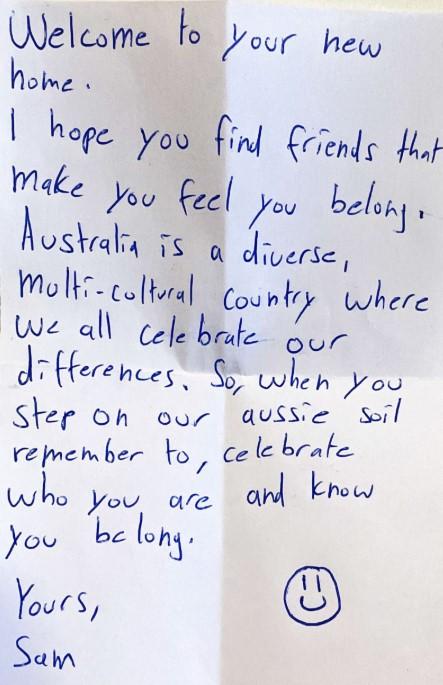 Welcome to your new
home.
I hope you find friends that
make you feel you belong.
Australia is a diverse,
multi-cultural country where
we all celebrate our
differences. So, when you
step on our aussie soil
remember to, celebrate
who you are and know
you belong.
Yours,
Sam